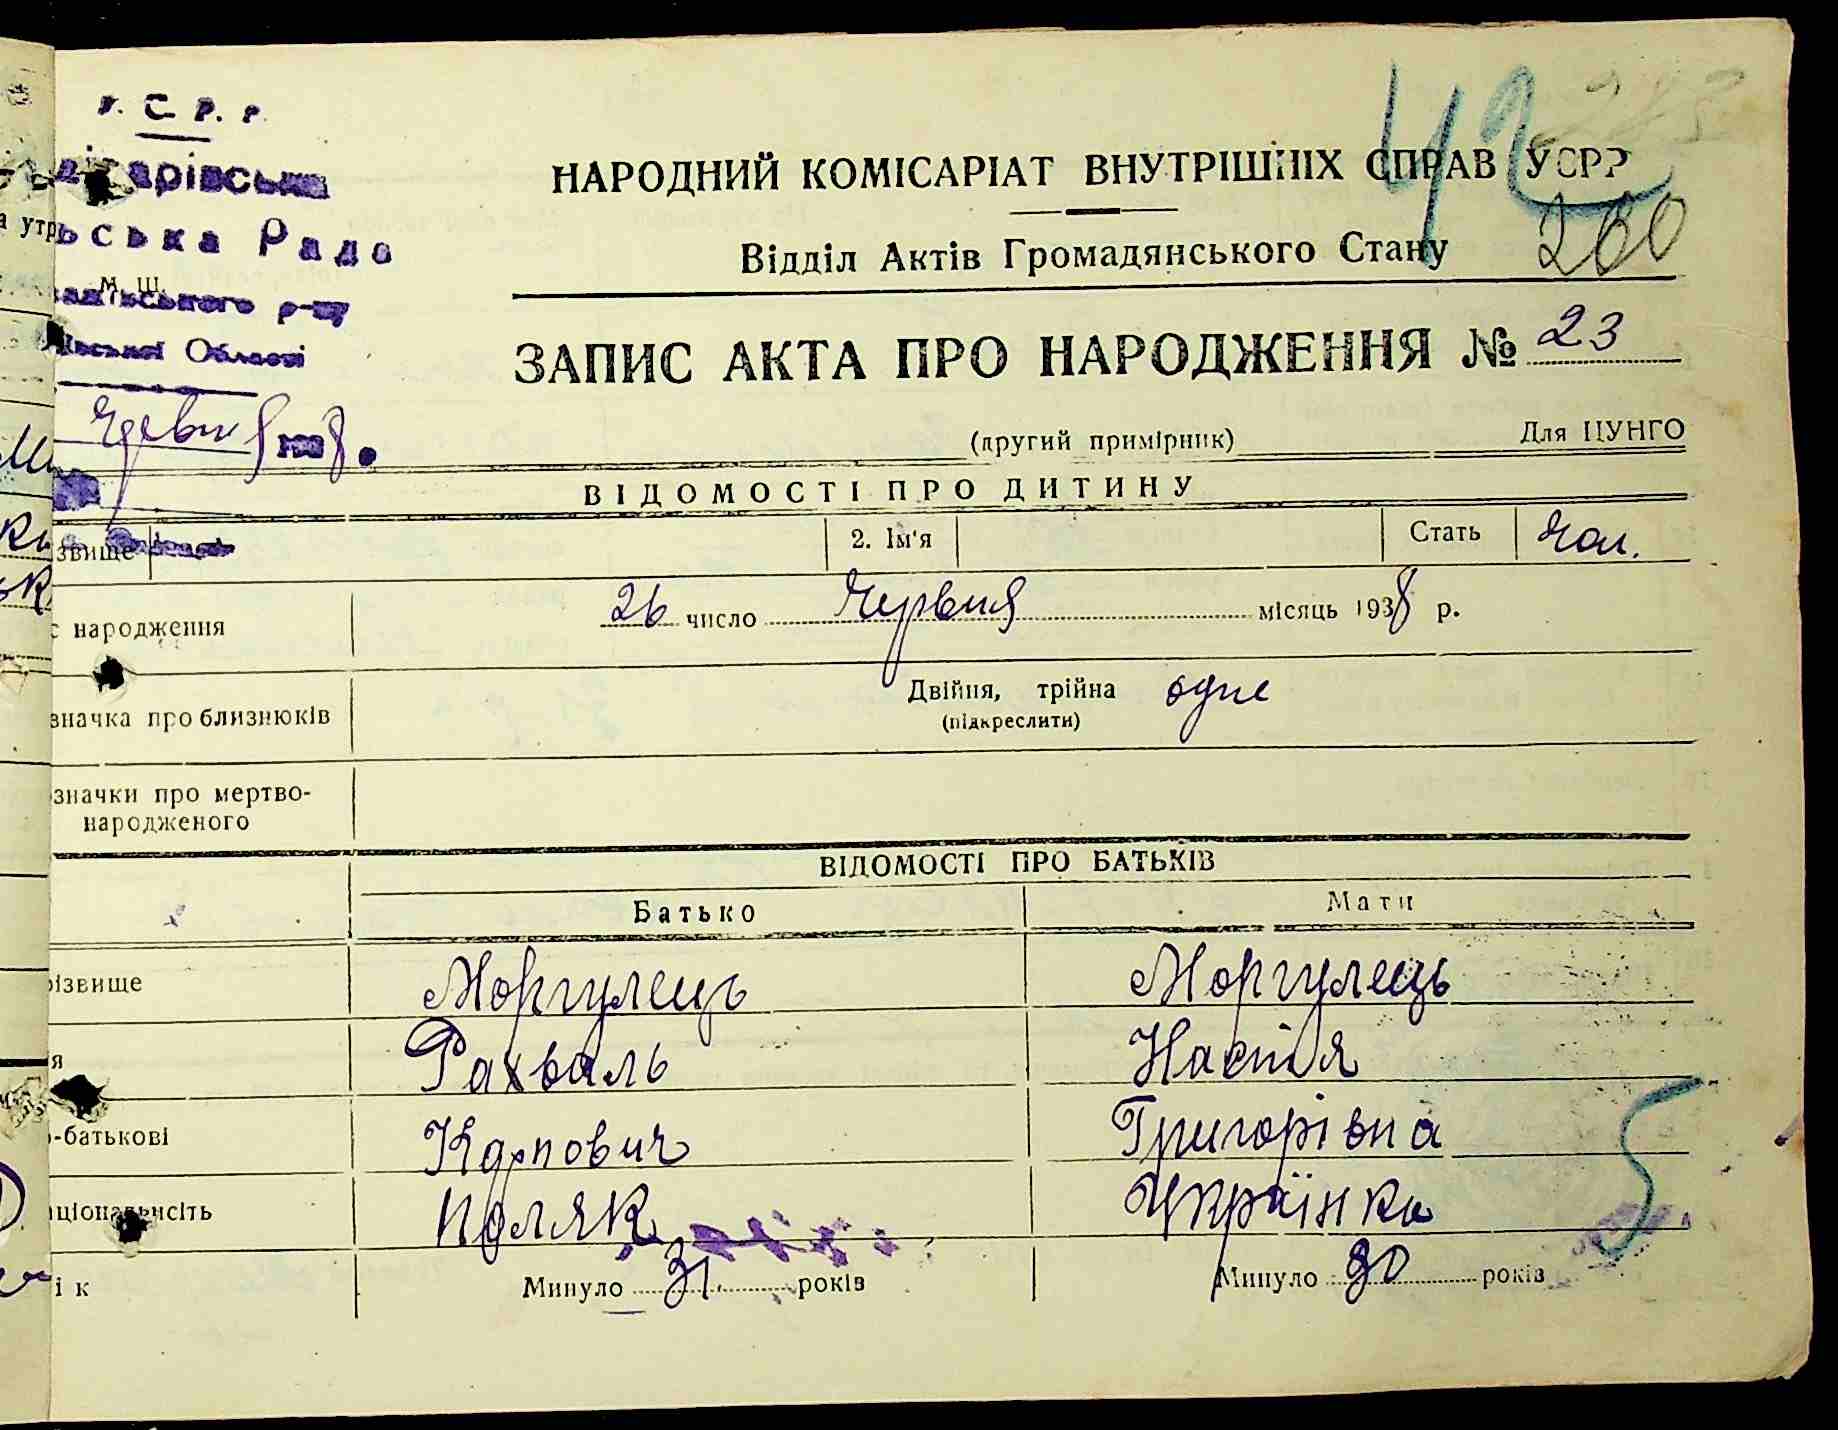 С. Р. Р.
арівська
ська Рада
м. ш.
ського р-ну
Області
Червня 8.
42
НАРОДНИЙ КОМІСАРІАТ ВНУТРІШНІХ СПРАВ УСРР
Відділ Актів Громадянського Стану 260
ЗАПИС АКТА ПРО НАРОДЖЕННЯ № 23
(другий примірник) Для ЦУНГО
ВІДОМОСТІ ПРО ДИТИНУ
ізвище 2. Ім'я Стать Чол.
с народження 26 число Червня місяць 1938 р.
значка про близнюків Двійня, трійна одне
(підкреслити)
значки про мертво-
народженого
ВІДОМОСТІ ПРО БАТЬКІВ
Батько Мати
різвище Моргулець Моргулець
я Рахваль Настія
о-батькові Карпович Григорівна
аціональність Поляк Українка
5
ік Минуло 31 років Минуло 30 років